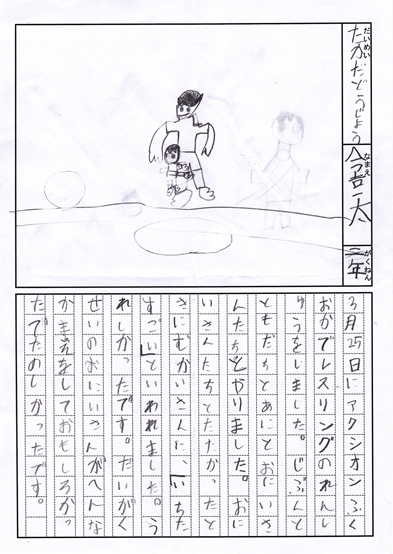 だいめい
たかだどうじょう
なまえ
がくねん
二年
3月25日にアクシオンふく
おかでレスリングのれんし
ゅうをしました。じぶんと
ともだちとあにとおにいさ
んたちとやりました。おに
いさんたちとたたかったと
きにむかいさんに、「いちた
すごい」といわれました。う
れしかったです。だいがく
せいのおにいさんがへんな
かまえをしておもしろかっ
たでたのしかったです。